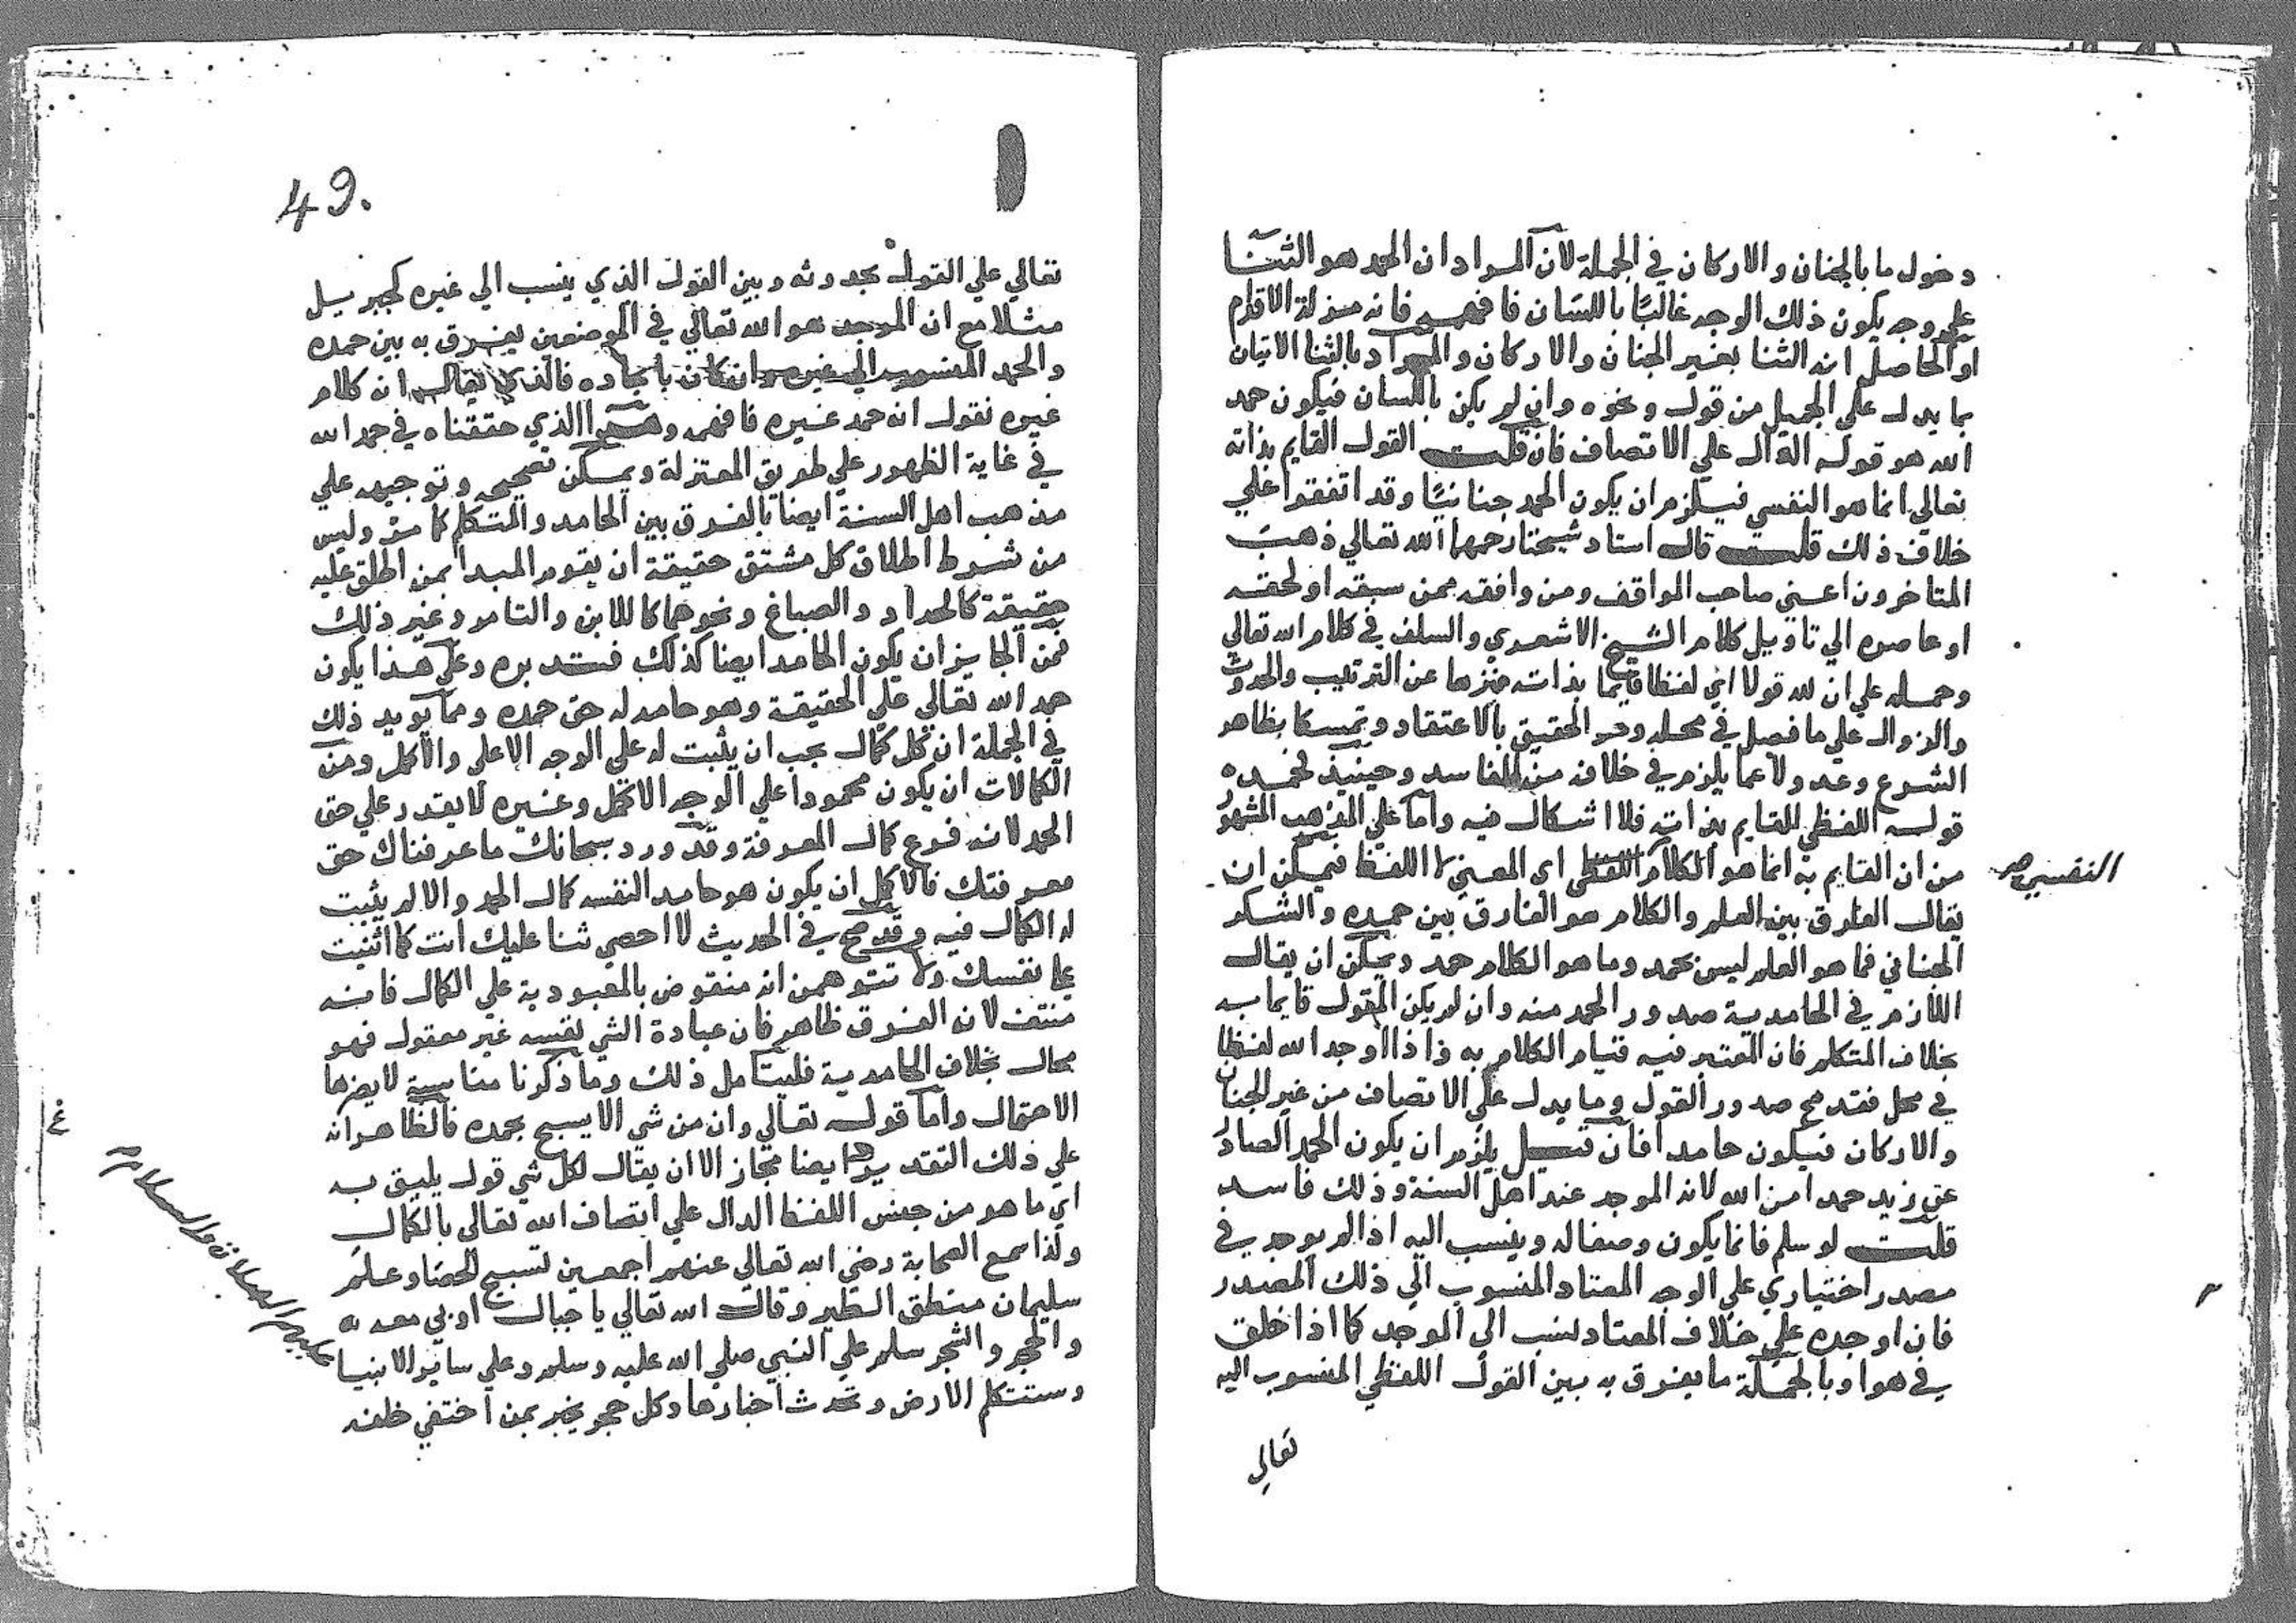 دخول ما بالجنان والاركان في الجملة لان المراد ان الحمد هو الثنا
علي وجه يكون ذلك الوجه غالبًا باللسان فافهمه فانه مزلة الاقدام
او الحاصل انه الثنا بغير الجنان والاركان والمراد بالثنا الاتيان
بما يدل علي الجميل من قول ونحوه وان لم يكن باللسان فيكون حمد
الله هو قوله الدال علي الاتصاف فان قلت القول القايم بذاته
تعالي انما هو النفسي فيلزم ان يكون الحمد جنانيًا وقد اتفقوا علي
خلاف ذلك قلت قال استاد شيخنا رحمهما الله تعالي ذهب
المتاخرون اعني صاحب المواقف ومن وافقه ممن سبقه او لحقه
او عاصره الي تاويل كلام الشيخ الاشعري والسلف في كلام الله تعالي
وحمله علي ان لله قولا اي لفظا قايما بذاته منزها عن الترتيب والحدوث
والزوال علي ما فصل في محله وهو الحقيق بالاعتقاد وتمسكا بظاهر
الشرع وعدولا عما يلزم في خلافه من المفاسد وحينيذ فحمده
قوله اللفظي القايم بذاته فلا اشكال فيه واما علي المذهب المشهور
من ان القايم به انما هو الكلام اللفظي اي المعني لا اللفظ فيمكن ان
النفسي صح
يقال الفارق بين العلم والكلام هو الفارق بين حمده والشكر
الجناني فما هو العلم ليس بحمد وما هو الكلام حمد ويمكن ان يقال
اللازم في الحامدية صدور الحمد منه وان لم يكن المقول قايما به
بخلاف المتكلم فان المعتبر فيه قيام الكلام به فاذا اوجد الله لفظا
في محل فقد صح صدور القول وما يدل علي الاتصاف من غير الجنان
والاركان فيكون حامدا فان قيل يلزم ان يكون الحمد الصادر
عن زيد حمدا من الله لانه الموجد عند اهل السنة وذلك فاسد
قلت لو سلم فانما يكون وصفا له وينسب اليه اذا لم يوجد في
مصدر اختياري علي الوجه المعتاد المنسوب الي ذلك المصدر
فان اوجده علي خلاف المعتاد ينسب الي الموجد كما اذا خلق
في هوا وبالجملة ما يفرق به بين القول اللفظي المنسوب اليه
تعالي
49.
تعالي علي القول بحدوثه وبين القول الذي ينسب الي غيره كجبريل
مثلا مع ان الموجد هو الله تعالي في الموضعين يفرق به بين حمده
والحمد المنسوب الي غيره وان كان بايجاده فالذي يقال انه كلام
غيره نقول انه حمد غيره فافهم وهذا الذي حققناه في حمد الله
في غاية الظهور علي طريق المعتزلة ويمكن تصحيحه وتوجيهه علي
مذهب اهل السنة ايضا بالفرق بين الحامد والمتكلم كما مر وليس
من شرط اطلاق كل مشتق حقيقة ان يقوم المبدا بمن اطلق عليه
حقيقة كالحداد والصباغ ونحوهما كاللابن والتامر وغير ذلك
فمن الجايز ان يكون الحامد ايضا كذلك فتدبره وعلي هذا يكون
حمد الله تعالي علي الحقيقة وهو حامد له حق حمده ومما يويد ذلك
في الجملة ان كل كمال يجب ان يثبت له علي الوجه الاعلي والاكمل ومن
الكمالات ان يكون محمودا علي الوجه الاكمل وغيره لا يقدر علي حق
الحمد لانه فرع كمال المعرفة وقد ورد سبحانك ما عرفناك حق
معرفتك فالاكمل ان يكون هو حامد النفسه كمال الحمد والا لم يثبت
له الكمال فيه وقد صح في الحديث لا احصي ثنا عليك انت كما اثنيت
علي نفسك ولا تتوهمن انه منقوض بالمعبودية علي الكمال فانه
منتف لان الفرق ظاهر فان عبادة الشي نفسه غير معقول فهو
محال بخلاف الحامدية فليتامل ذلك وما ذكرنا مناسبة لا يضرها
الاحتمال واما قوله تعالي وان من شي الا يسبح بحمده فالظاهر انه
علي ذلك التقدير ايضا مجاز الا ان يقال لكل شي قول يليق به
اي ما هو من جنس اللفظ الدال علي اتصاف الله تعالي بالكمال
ولذا سمع الصحابة رضي الله تعالي عنهم اجمعين تسبيح الحصا وعلم
سليمان منطق الطير وقال الله تعالي يا جبال اوبي معه
والحجر والشجر سلم علي النبي صلي الله عليه وسلم وعلي ساير الانبيا
عليهم الصلاة والسلام
وستتكلم الارض وتحدث اخبارها وكل حجر يخبر بمن اختفي خلفه